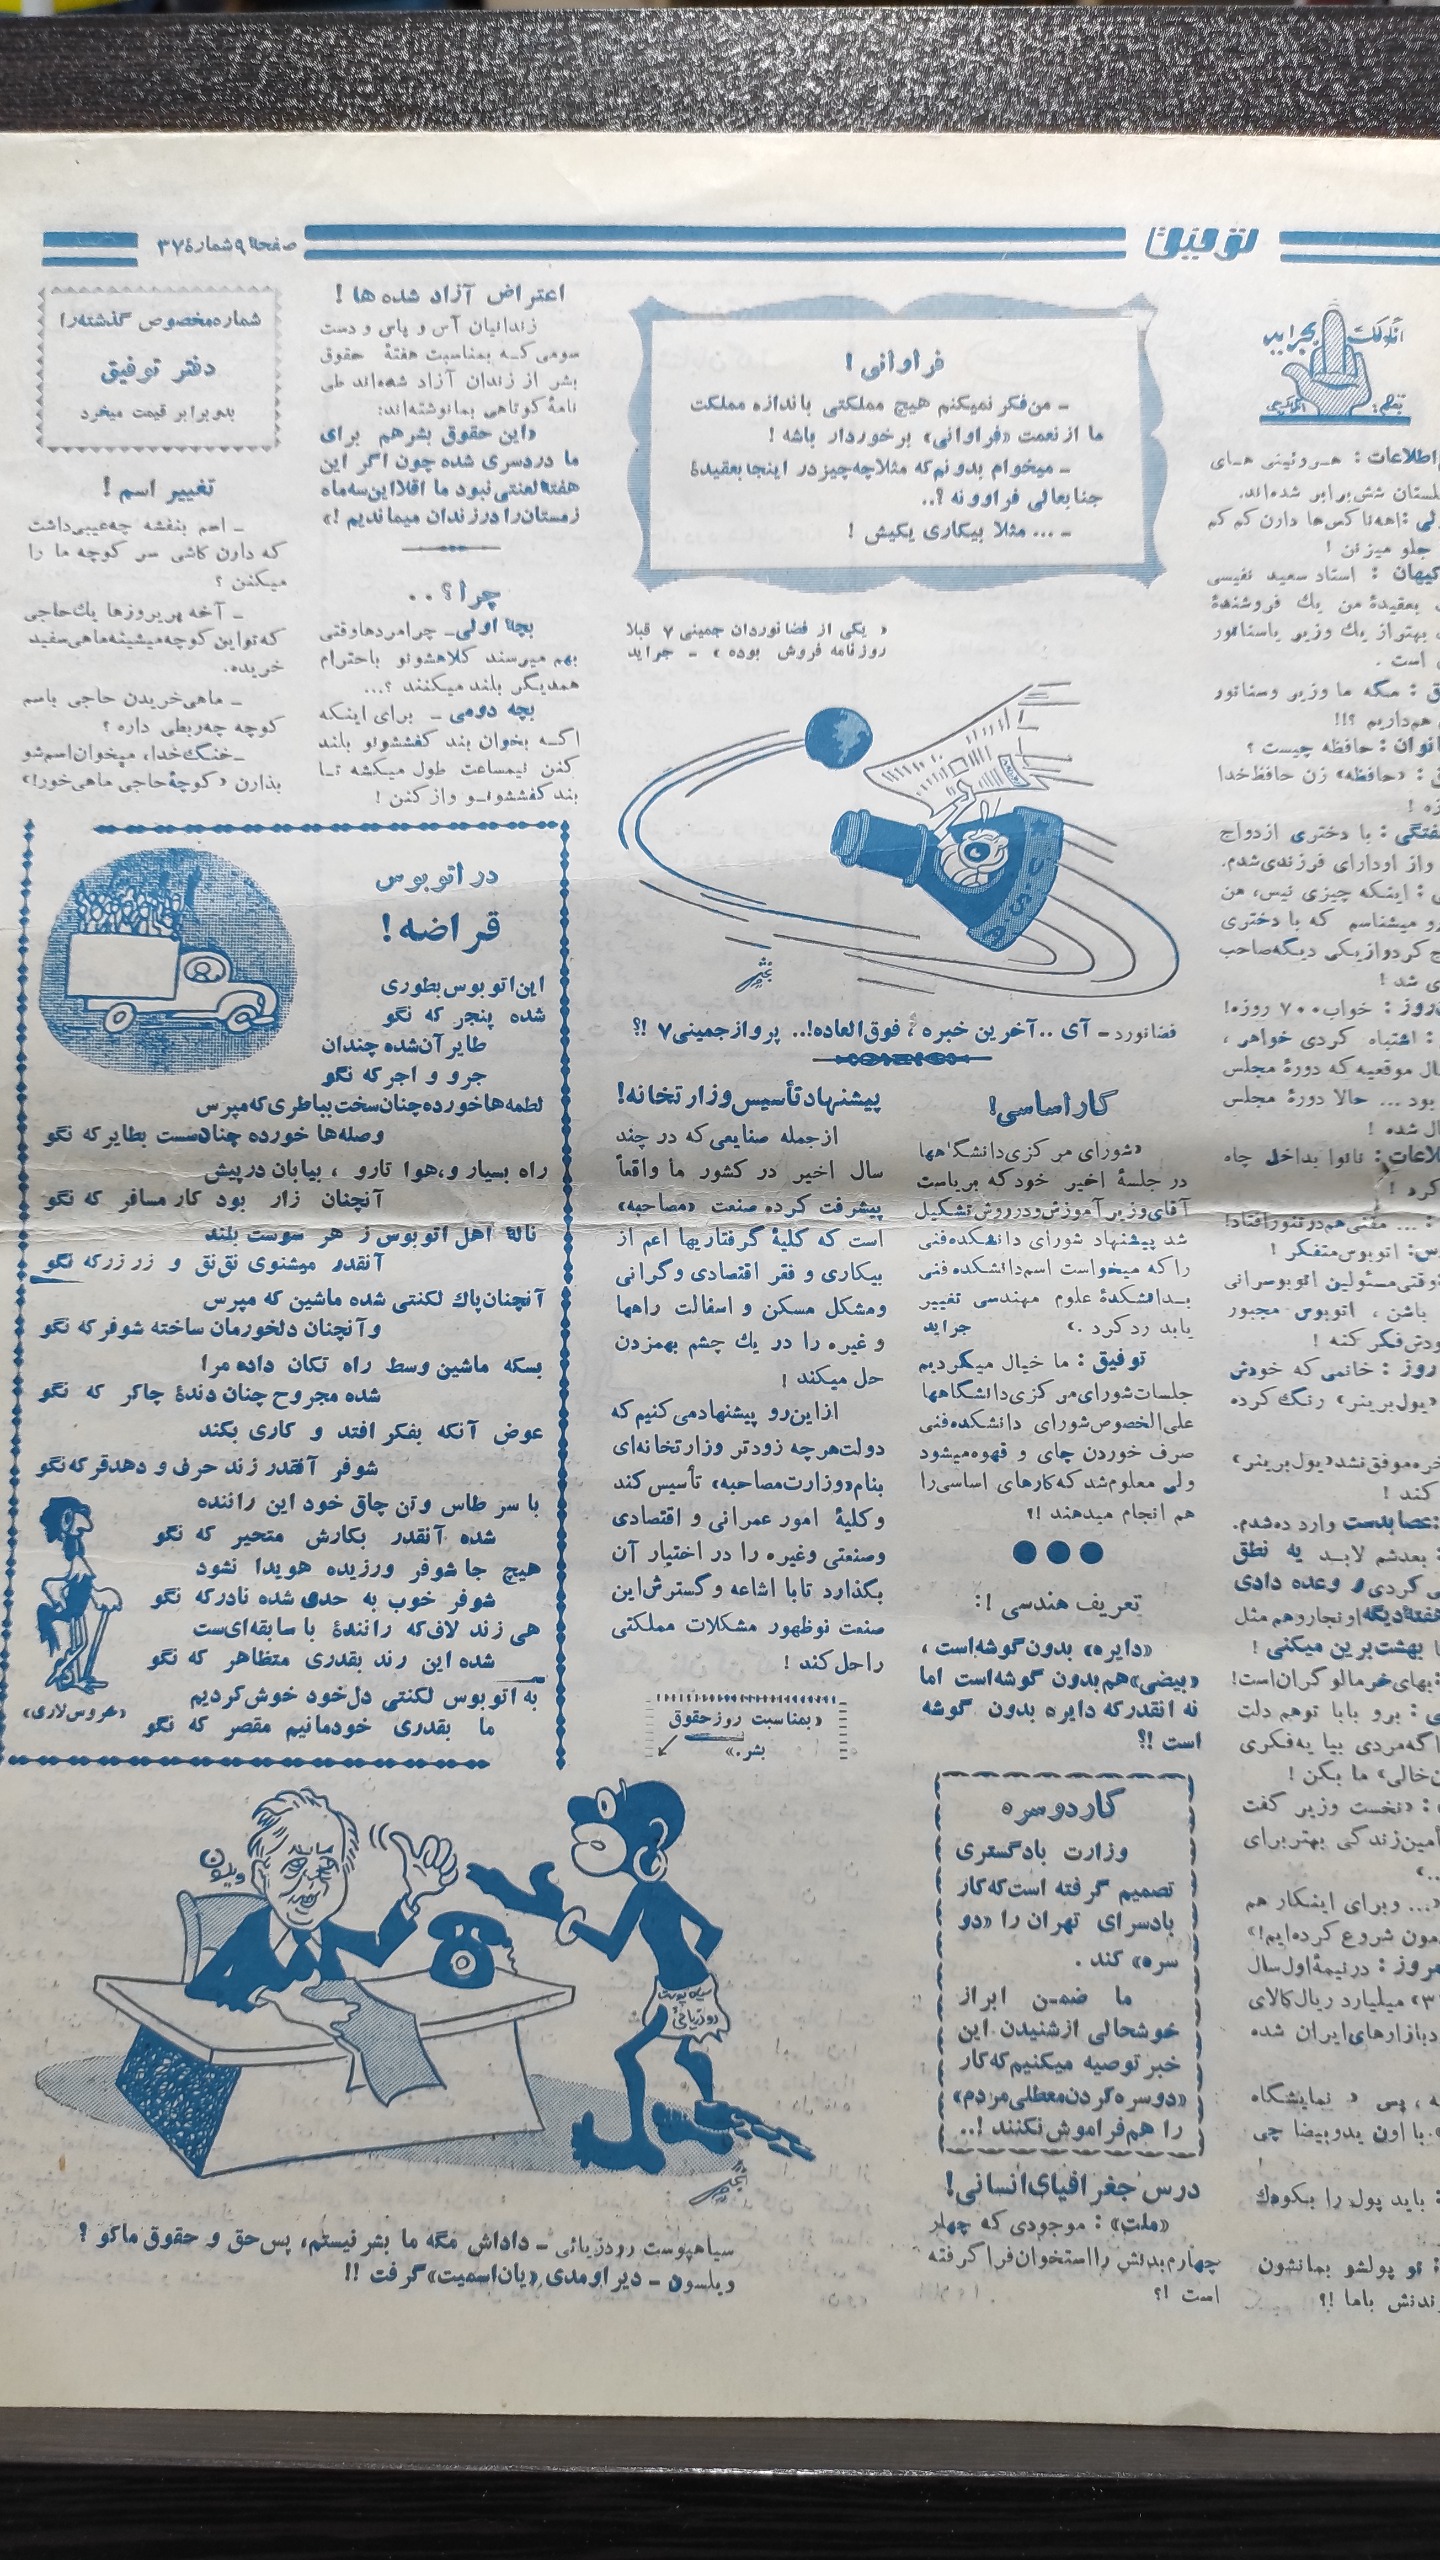 توفیق
صفحهٔ ۹ شمارهٔ ۳۷
انگولکت
بجراید
اطلاعات : هروئینی های
شش برابر شده‌اند.
اهه ناکس‌ها دارن کم کم
جلو میزنن !
کیهان : استاد سعید نفیسی
بعقیدهٔ من یك فروشندهٔ
بهتر از یك وزیر یاسناتور
است .
: مگه ما وزیر و سناتور
هم‌داریم ؟!!
بانوان : حافظه چیست ؟
: «حافظه» زن حافظ خدا
: با دختری ازدواج
واز او دارای فرزندی شدم.
: اینکه چیزی نیس، من
رو میشناسم که با دختری
کرد و از یکی دیگه صاحب
شد !
: خواب ۷۰۰ روزه!
: اشتباه کردی خواهی ،
موقعیه که دورهٔ مجلس
بود ... حالا دورهٔ مجلس
شده !
: نانوا بداخل چاه
: ... مفتی هم در تنور افتاد!
: اتوبوس متفکر !
مسئولین اتوبوسرانی
باشن ، اتوبوس مجبور
فکر کنه !
: خانمی که خودش
«یول برینر» رنگ کرده
موفق نشد «یول برینر»
کند !
: عصا بدست وارد ده شدم.
: بعدشم لابد یه نطق
کردی و وعده دادی
هفتهٔ دیگه اونجارو هم مثل
بهشت برین میکنی !
: بهای خرمالو گران است!
: برو بابا توهم دلت
اگه مردی بیا یه فکری
خالی» ما بکن !
: «نخست وزیر گفت
زندگی بهتر برای
«... و برای اینکار هم
شروع کرده‌ایم!»
: در نیمهٔ اول سال
میلیارد ریال کالای
بازارهای ایران شده
پس « نمایشگاه
با اون یدوبیضا چی
: باید پول را بکودك
: تو پولشو بمانشون
باما !؟
فراوانی !
ـ من فکر نمیکنم هیچ مملکتی باندازه مملکت
ما از نعمت «فراوانی» برخوردار باشه !
ـ میخوام بدونم که مثلا چه چیز در اینجا بعقیدهٔ
جنابعالی فراوونه ؟..
ـ ... مثلا بیکاری یکیش !
« یکی از فضانوردان جمینی ۷ قبلا
روزنامه فروش بوده » ـ جراید
فضانورد ـ آی .. آخرین خبره ، فوق‌العاده!.. پرواز جمینی ۷ !؟
کار اساسی!
«شورای مرکزی دانشگاهها
در جلسهٔ اخیر خود که بریاست
آقای وزیر آموزش و پرورش تشکیل
شد پیشنهاد شورای دانشکده فنی
را که میخواست اسم دانشکده فنی
بدانشکدهٔ علوم مهندسی تغییر
یابد رد کرد .» جراید
توفیق : ما خیال میکردیم
جلسات شورای مرکزی دانشگاهها
علی‌الخصوص شورای دانشکده فنی
صرف خوردن چای و قهوه میشود
ولی معلوم شد که کارهای اساسی را
هم انجام میدهند !؟
تعریف هندسی !:
«دایره» بدون گوشه است ،
«بیضی» هم بدون گوشه است اما
نه انقدر که دایره بدون گوشه
است !؟
کار دوسره
وزارت بادگستری
تصمیم گرفته است که کار
بادسرای تهران را «دو
سره» کند .
ما ضمن ابراز
خوشحالی از شنیدن این
خبر توصیه میکنیم که کار
«دوسره کردن معطلی مردم»
را هم فراموش نکنند !..
درس جغرافیای انسانی!
«ملت» : موجودی که چهار
چهارم بدنش را استخوان فرا گرفته
است !؟
پیشنهاد تأسیس وزارتخانه!
از جمله صنایعی که در چند
سال اخیر در کشور ما واقعاً
پیشرفت کرده صنعت «مصاحبه»
است که کلیهٔ گرفتاریها اعم از
بیکاری و فقر اقتصادی و گرانی
و مشکل مسکن و اسفالت راهها
و غیره را در یك چشم بهمزدن
حل میکند !
از این رو پیشنهاد می کنیم که
دولت هر چه زودتر وزارتخانه‌ای
بنام «وزارت مصاحبه» تأسیس کند
و کلیهٔ امور عمرانی و اقتصادی
و صنعتی وغیره را در اختیار آن
بگذارد تا با اشاعه و گسترش این
صنعت نوظهور مشکلات مملکتی
را حل کند !
«بمناسبت روز حقوق
بشر.»
اعتراض آزاد شده ها !
زندانیان آس و پاس و دست
سومی که بمناسبت هفتهٔ حقوق
بشر از زندان آزاد شده‌اند طی
نامهٔ کوتاهی بما نوشته‌اند:
«این حقوق بشر هم برای
ما دردسری شده چون اگر این
هفتهٔ لعنتی نبود ما اقلا این سه ماه
زمستان را در زندان میماندیم !»
چرا ؟..
بچهٔ اولی ـ چرا مردها وقتی
بهم میرسند کلاهشونو باحترام
همدیگر بلند میکنند ؟...
بچه دومی ـ برای اینکه
اگه بخوان بند کفششونو بلند
کنن نیمساعت طول میکشه تا
بند کفششونو واز کنن !
شماره مخصوص گذشته را
دفتر توفیق
بدو برابر قیمت میخرد
تغییر اسم !
ـ اسم بنفشه چه عیبی داشت
که دارن کاشی سر کوچه ما را
میکنن ؟
ـ آخه پریروزها یك حاجی
که تو این کوچه میشینه ماهی سفید
خریده.
ـ ماهی خریدن حاجی باسم
کوچه چه ربطی داره ؟
ـ خنگ خدا، میخوان اسم‌شو
بذارن «کوچهٔ حاجی ماهی خور!»
در اتوبوس
قراضه !
این اتوبوس بطوری
شده پنجر که نگو
طایر آن شده چندان
جرو و اجر که نگو
لطمه‌ها خورده چنان سخت بباطری که مپرس
وصله‌ها خورده چنان سست بطایر که نگو
راه بسیار و، هوا تارو ، بیابان در پیش
آنچنان زار بود کار مسافر که نگو
نالهٔ اهل اتوبوس ز هر سوست بلند
آنقدر میشنوی نق نق و زر زر که نگو
آنچنان پاك لکنتی شده ماشین که مپرس
و آنچنان دلخورمان ساخته شوفر که نگو
بسکه ماشین وسط راه تکان داده مرا
شده مجروح چنان دندهٔ چاکر که نگو
عوض آنکه بفکر افتد و کاری بکند
شوفر آنقدر زند حرف و دهد قر که نگو
با سر طاس و تن چاق خود این راننده
شده آنقدر بکارش متحیر که نگو
هیچ جا شوفر ورزیده هویدا نشود
شوفر خوب به حدی شده نادر که نگو
هی زند لاف که رانندهٔ با سابقه‌ای‌ست
شده این رند بقدری متظاهر که نگو
به اتوبوس لکنتی دل خود خوش کردیم
ما بقدری خودمانیم مقصر که نگو
«خروس لاری»
ویلسون
سیاه پوست
رودزیائی
سیاهپوست رودزیائی ـ داداش مگه ما بشر نیستم، پس حق و حقوق ماکو ؟
ویلسون ـ دیر اومدی «یان اسمیت» گرفت !!